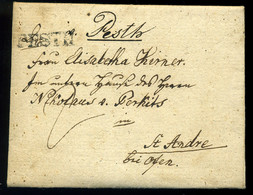 PESTH
Pesth
Frau Elisabetha Kerner.
im untern Hause des Herrn
Nikolaus v. Perkits
in
St Andre
bei Ofen.